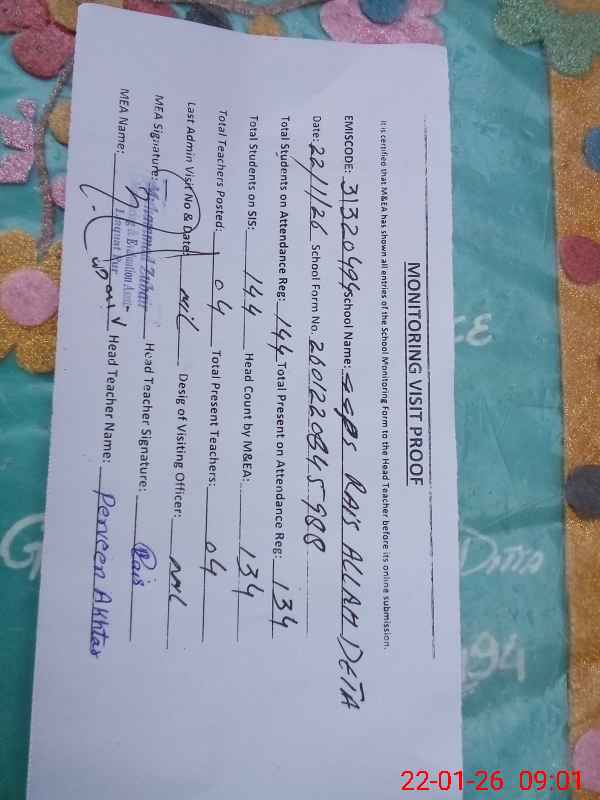 MONITORING VISIT PROOF
It is certified that M&EA has shown all entries of the School Monitoring Form to the Head Teacher before its online submission.
EMISCODE: 31320494 School Name: GGPS RAIS ALLAH DETA
Date: 22/1/26 School Form No. 2601220845988
Total Students on Attendance Reg: 144 Total Present on Attendance Reg: 134
Total Students on SIS: 144 Head Count by M&EA: 134
Total Teachers Posted: 04 Total Present Teachers: 04
Last Admin Visit No & Date: NIL Desig of Visiting Officer: NIL
MEA Signature: Muhammad Zubair Head Teacher Signature: Rais
& Evaluation
Liaquat Pur
MEA Name: Head Teacher Name: Perveen Akhtar
CE
DETTA
94
22-01-26 09:01